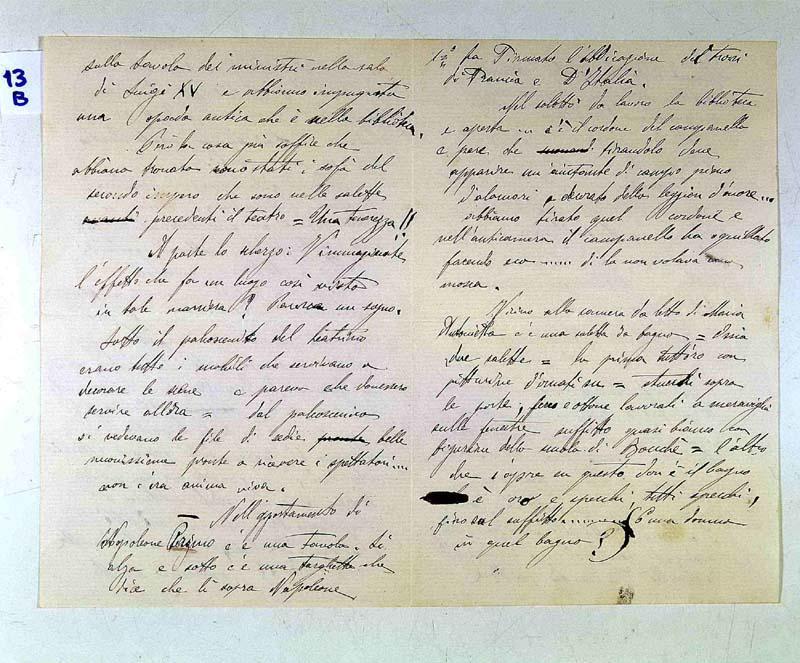 13
B
sulla tavola dei ministri nella sala
di Luigi XV e abbiamo impugnata
una spada antica che è nella biblioteca.
Però la cosa più soffice che
abbiamo trovato sono stati i sofà del
secondo impero che sono nelle salette
precedenti il teatro = Una tenerezza!!
A parte lo scherzo: V'immaginate
l'effetto che fa un luogo così visto
in tale maniera? Pareva un sogno.
Sotto il palcoscenico del teatrino
erano tutti i mobili che servivano a
decorare le scene e pareva che dovessero
servire allora = dal palcoscenico
si vedevano le file di sedie pronte belle
nuovissime pronte a ricevere i spettatori....
non c'era anima viva.
Nell'appartamento di
Napoleone Primo c'è una tavola. Si
alza e sotto c'è una targhetta che
dice che lì sopra Napoleone
1º ha Firmato l'abdicazione dei troni
di Francia e D'Italia.
Nel salotto da lavoro la biblioteca
è aperta ... c'è il cordone del campanello
e pare che tirandolo deve
apparire un aiutante di campo pieno
d'alamari e decorato della legion d'onore...
abbiamo tirato quel cordone e
nell'anticamera il campanello ha squillato
facendo eco ..... di là non volava una
mosca.
Vicino alla camera da letto di Maria
Antonietta c'è una saletta da bagno = Ossia
due salette = La prima tutt'oro con
pitturine d'ornati su = stucchi sopra
le porte, ferro e ottone lavorati a meraviglia
sulle finestre soffitto quasi bianco con
figurine della scuola di Bouché = l'altra
che sopra su questo, dov'è il bagno
è oro e specchi, tutti specchi,
fino sul soffitto ....... E una donna
in quel bagno?